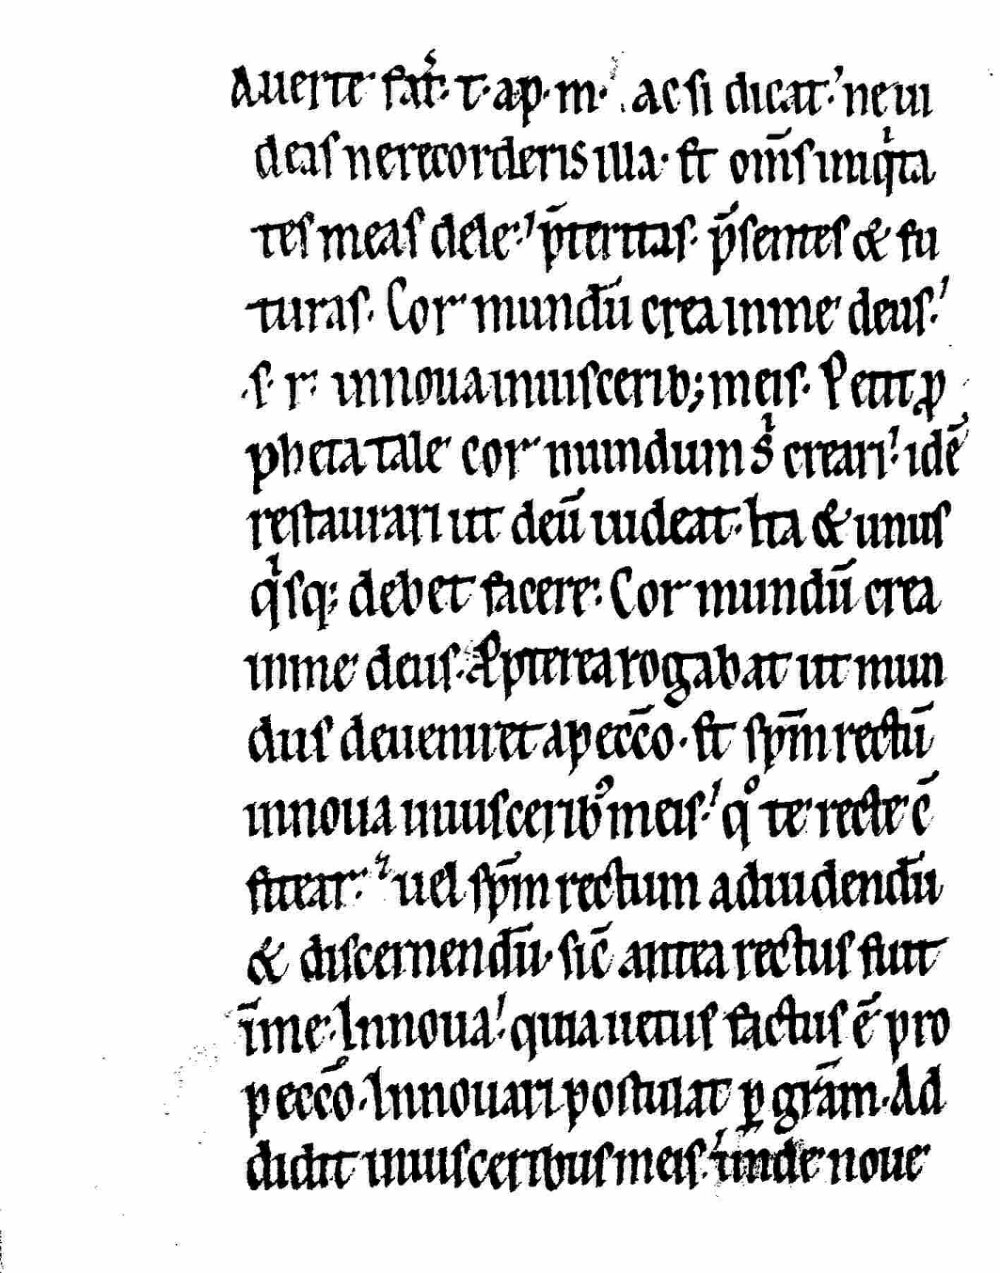 Auerte fat̄. t. a p. m. ac si dicat. ne ui
deas ne recorderis illa. Et om̄s iniqͥta
tes meas dele. p̄teritas. p̄sentes & fu
turas. Cor mundū crea in me deus.
.s. r. innoua in uiscerib; meis. Petit ꝓ
pheta tale cor mundum sͥ creari. idē
restaurari ut deū uideat. Ita & unus
qͥsq; debet facere. Cor mundū crea
in me deus. Pp̄terea rogabat ut mun
dus deueniret a pecc̄o. Et sp̄m rectū
innoua in uisceribꝰ meis. qͦ te recte c̄
fitear. uel sp̄m rectum ad uidendū
& discernendū. sic̄ antea rectus fuit
ī me. Innoua. quia uetus factus ē pro
pecc̄o. Innouari postulat ꝑ grām. Ad
didit in uisceribus meis. unde noue